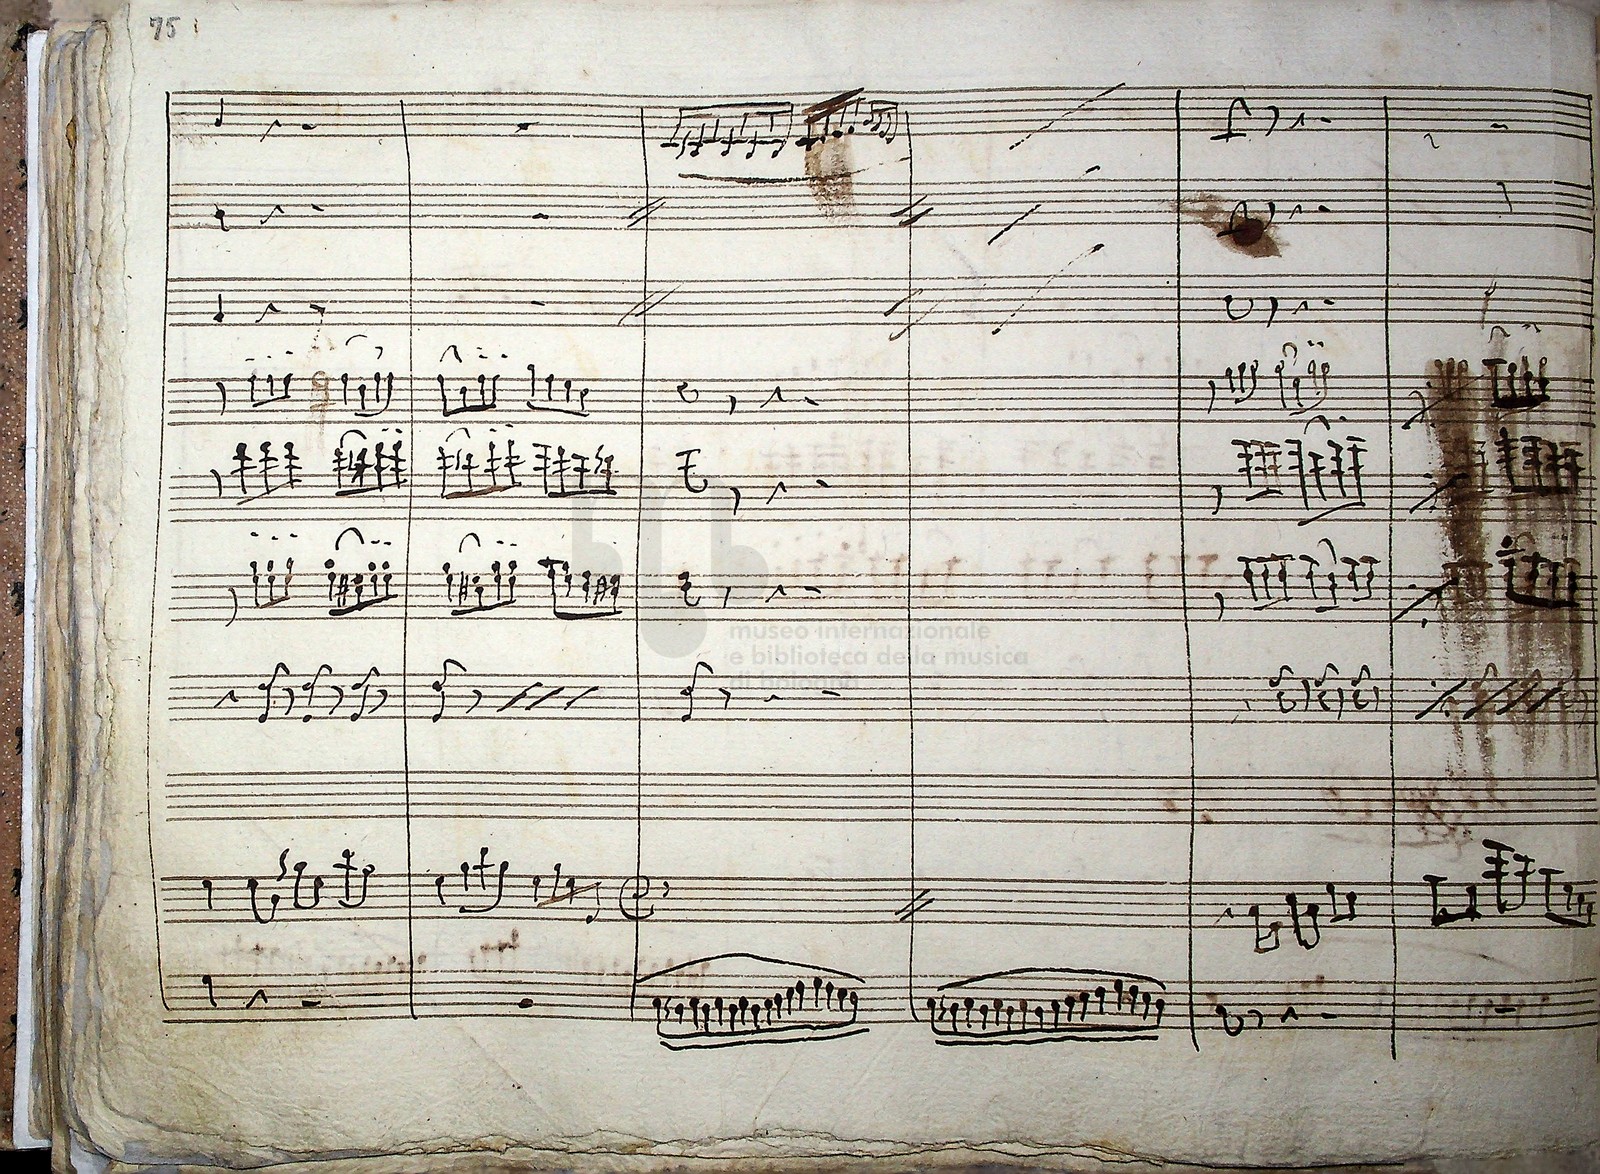 75
museo internazionale
e biblioteca della musica
di bologna